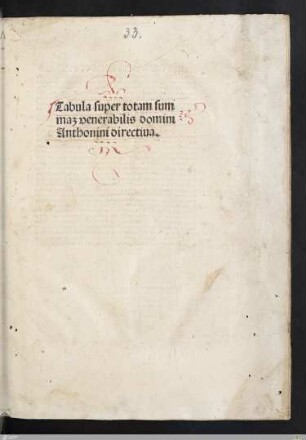 33.
Tabula super totam sum
maꝫ venerabilis domini
Anthonini directiua.